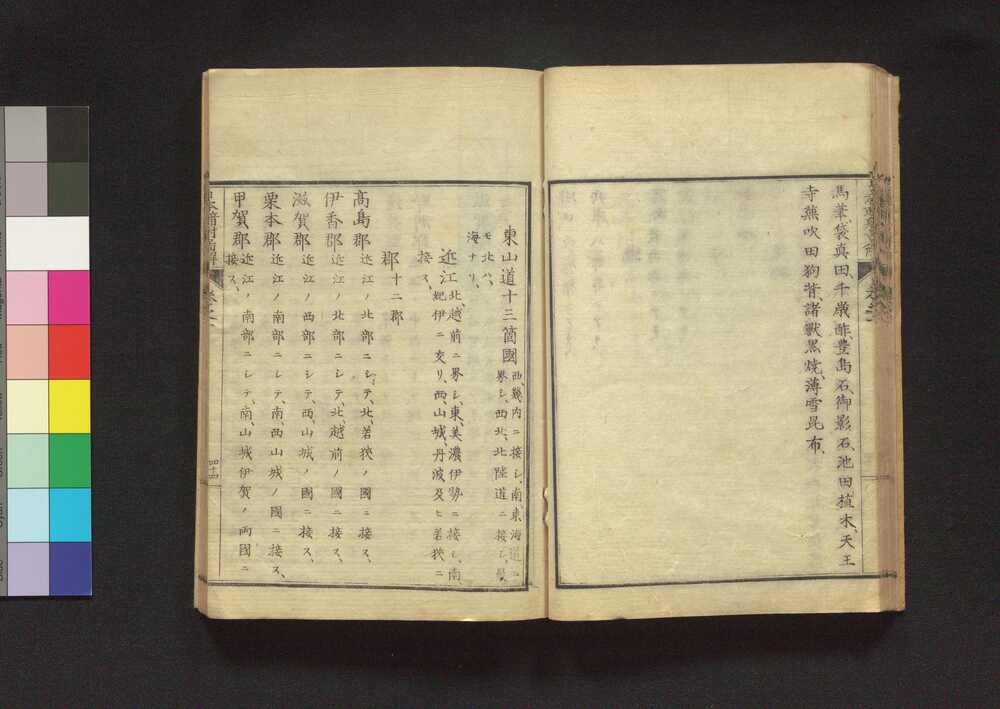 馬革、袋真田、千歳酢、豊島石、御影石、池田植木、天王
寺蕪、吹田狗背、諸獣黒焼、薄雪昆布、
東山道十三箇國
西、畿内ニ接シ、南、東海道ニ
界シ、西北、北陸道ニ接シ、最
モ北ハ、
海ナリ、
近江
北、越前ニ界シ、東、美濃伊勢ニ接シ、南
紀伊ニ交リ、西山城、丹波及ヒ若狭ニ
接ス、
郡十二郡
高島郡 近江ノ北部ニシテ、北、若狭ノ國ニ接ス、
伊香郡 近江ノ北部ニシテ、北、越前ノ國ニ接ス、
滋賀郡 近江ノ西部ニシテ、西、山城ノ國ニ接ス、
栗本郡 近江ノ南部ニシテ、南、西山城ノ國ニ接ス、
甲賀郡 近江ノ南部ニシテ、南、山城伊賀ノ両國ニ
接ス、
四十四